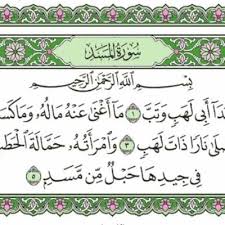 سُورَةُ المَسَدِ
بِسْمِ اللَّهِ الرَّحْمَٰنِ الرَّحِيمِ
يَدَآ أَبِي لَهَبٍ وَتَبَّ ١ مَآ أَغْنَىٰ عَنْهُ مَالُهُۥ وَمَا كَسَ
صْلَىٰ نَارًا ذَاتَ لَهَبٍ ٣ وَٱمْرَأَتُهُۥ حَمَّالَةَ ٱلْحَطَ
فِي جِيدِهَا حَبْلٌ مِّن مَّسَدٍۭ ٥